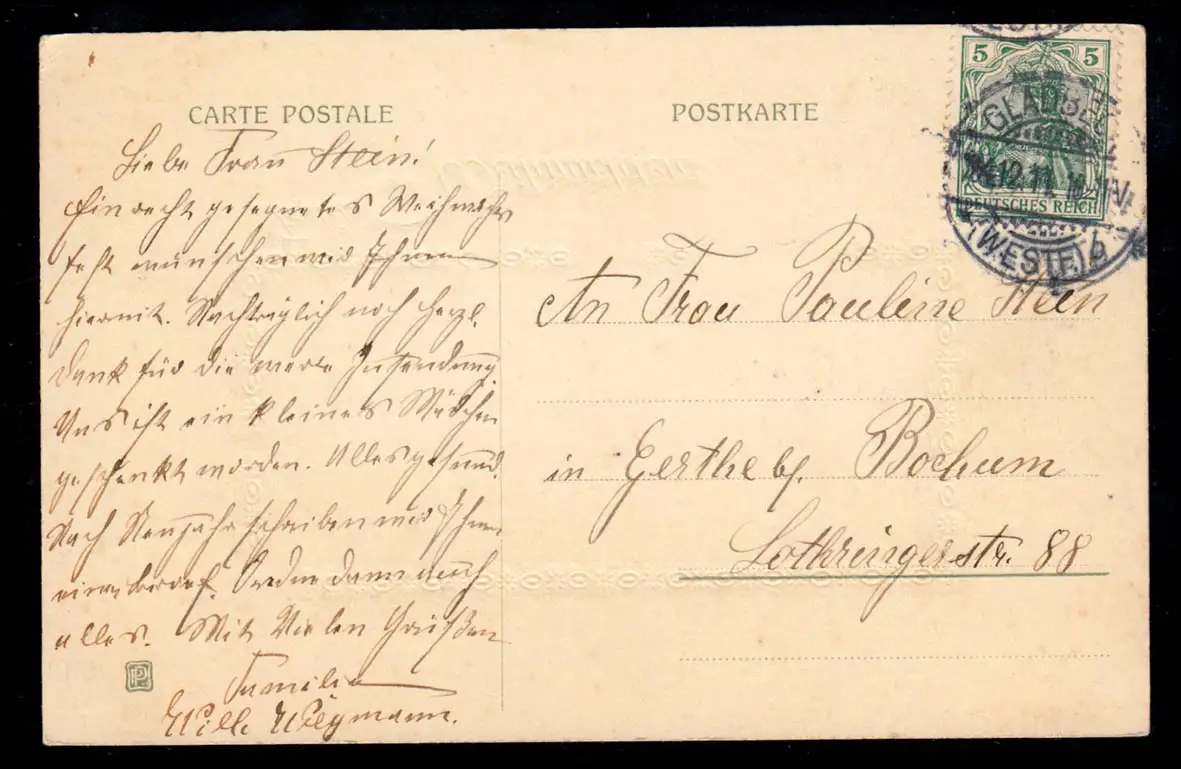 CARTE POSTALE
POSTKARTE
5 5
DEUTSCHES REICH
GLADBECK
12.11.
(WESTF.) b
Liebe Frau Stein!
Ein recht gesegnetes Weihnachts
fest wünschen wir Ihnen
hiermit. Nachträglich noch herzl.
Dank für die werte Zusendung
Uns ist ein kleines Mädchen
geschenkt worden. Alles gesund.
Nach Neujahr schreiben wir Ihnen
einen Brief. Ordne dann auch
alles. Mit Vielen Grüßen
Familie
Wilh. Wiegmann.
An Frau Pauline Stein
in Gerthe b/ Bochum
Lothringerstr. 88